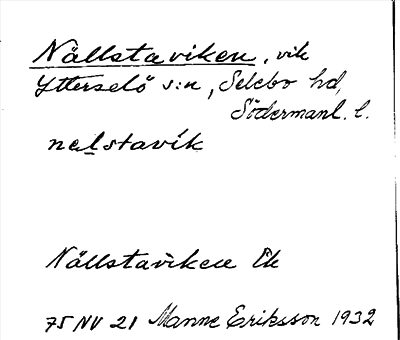 Nällstaviken, vik
Ytterselö s:n, Selebo hd,
Södermanl. l.
nalstavik
Nällstaviken Ek
75 NV 21 Manne Eriksson 1932